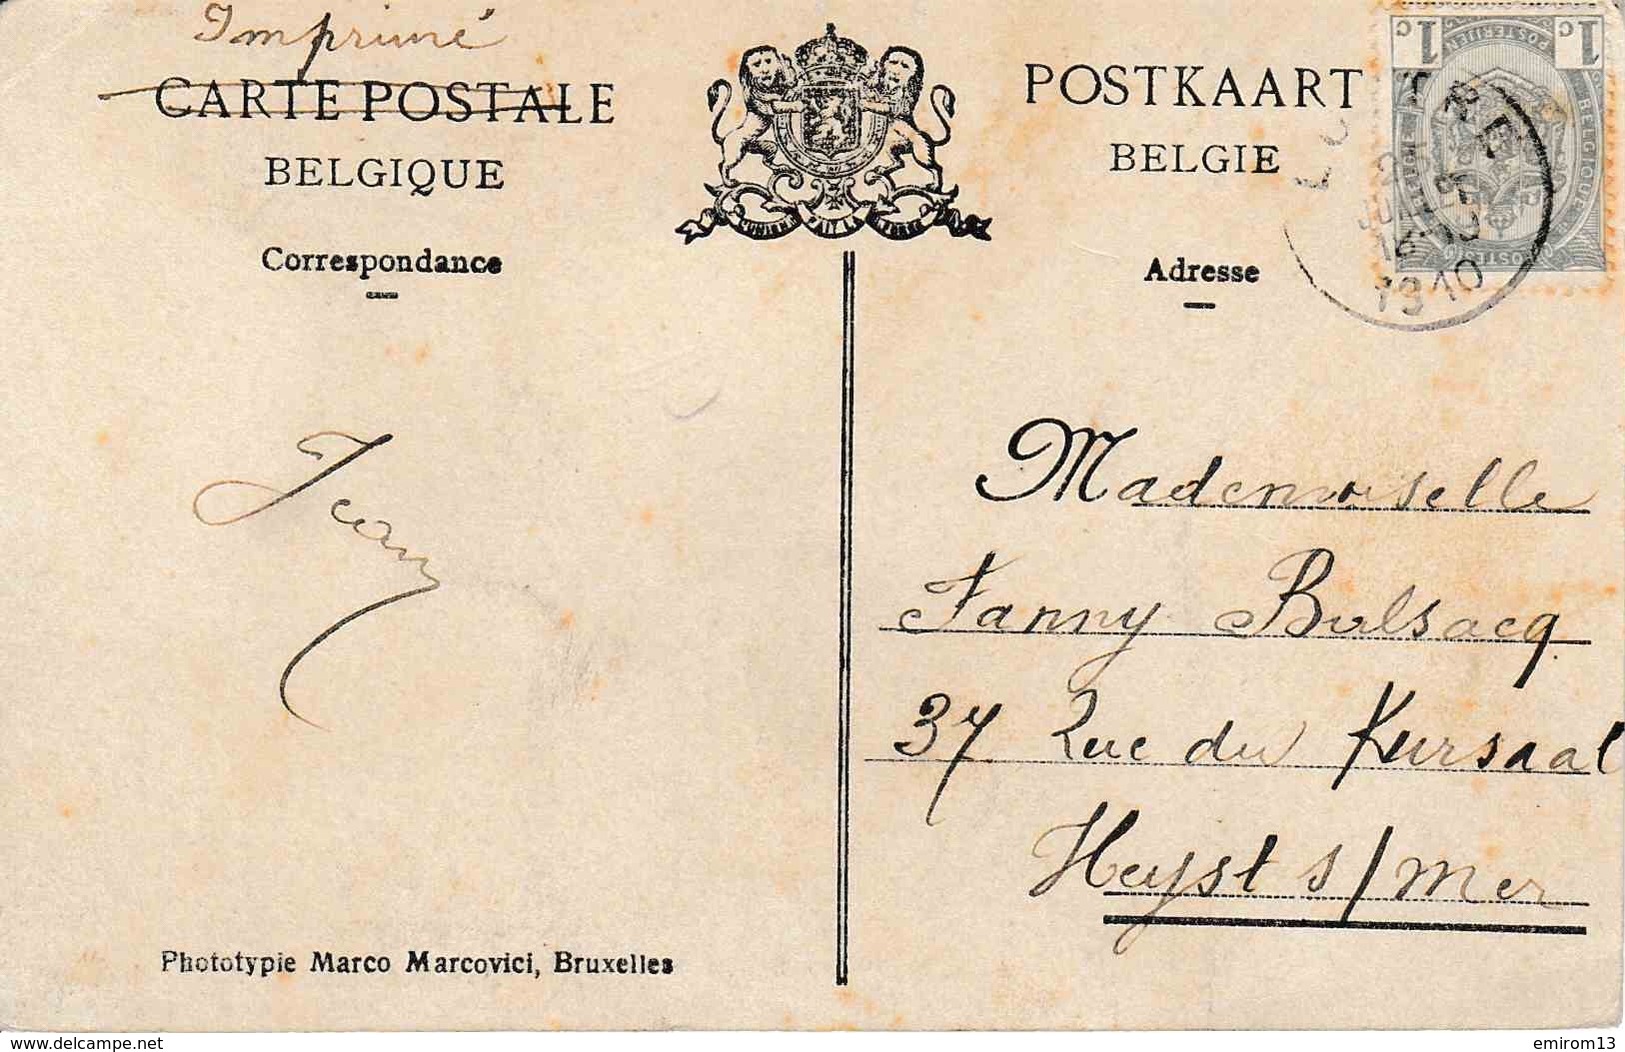 Imprimé
CARTE POSTALE
BELGIQUE
Correspondance
POSTKAART
BELGIE
Adresse
1c 1c
POSTERIJEN
BELGIQUE
1910
L'UNION FAIT LA FORCE
Jean
Mademoiselle
Fanny Bulsacq
37 Rue du Kursaal
Heyst s/mer
Phototypie Marco Marcovici, Bruxelles
www.delcampe.net
emirom13